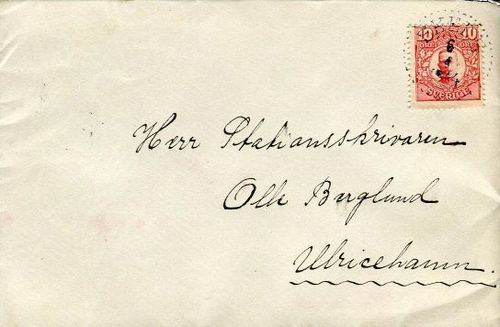 10 10
ÖRE ÖRE
SVERIGE
6
Herr Stationsskrivaren
Olle Berglund
Ulricehamn.